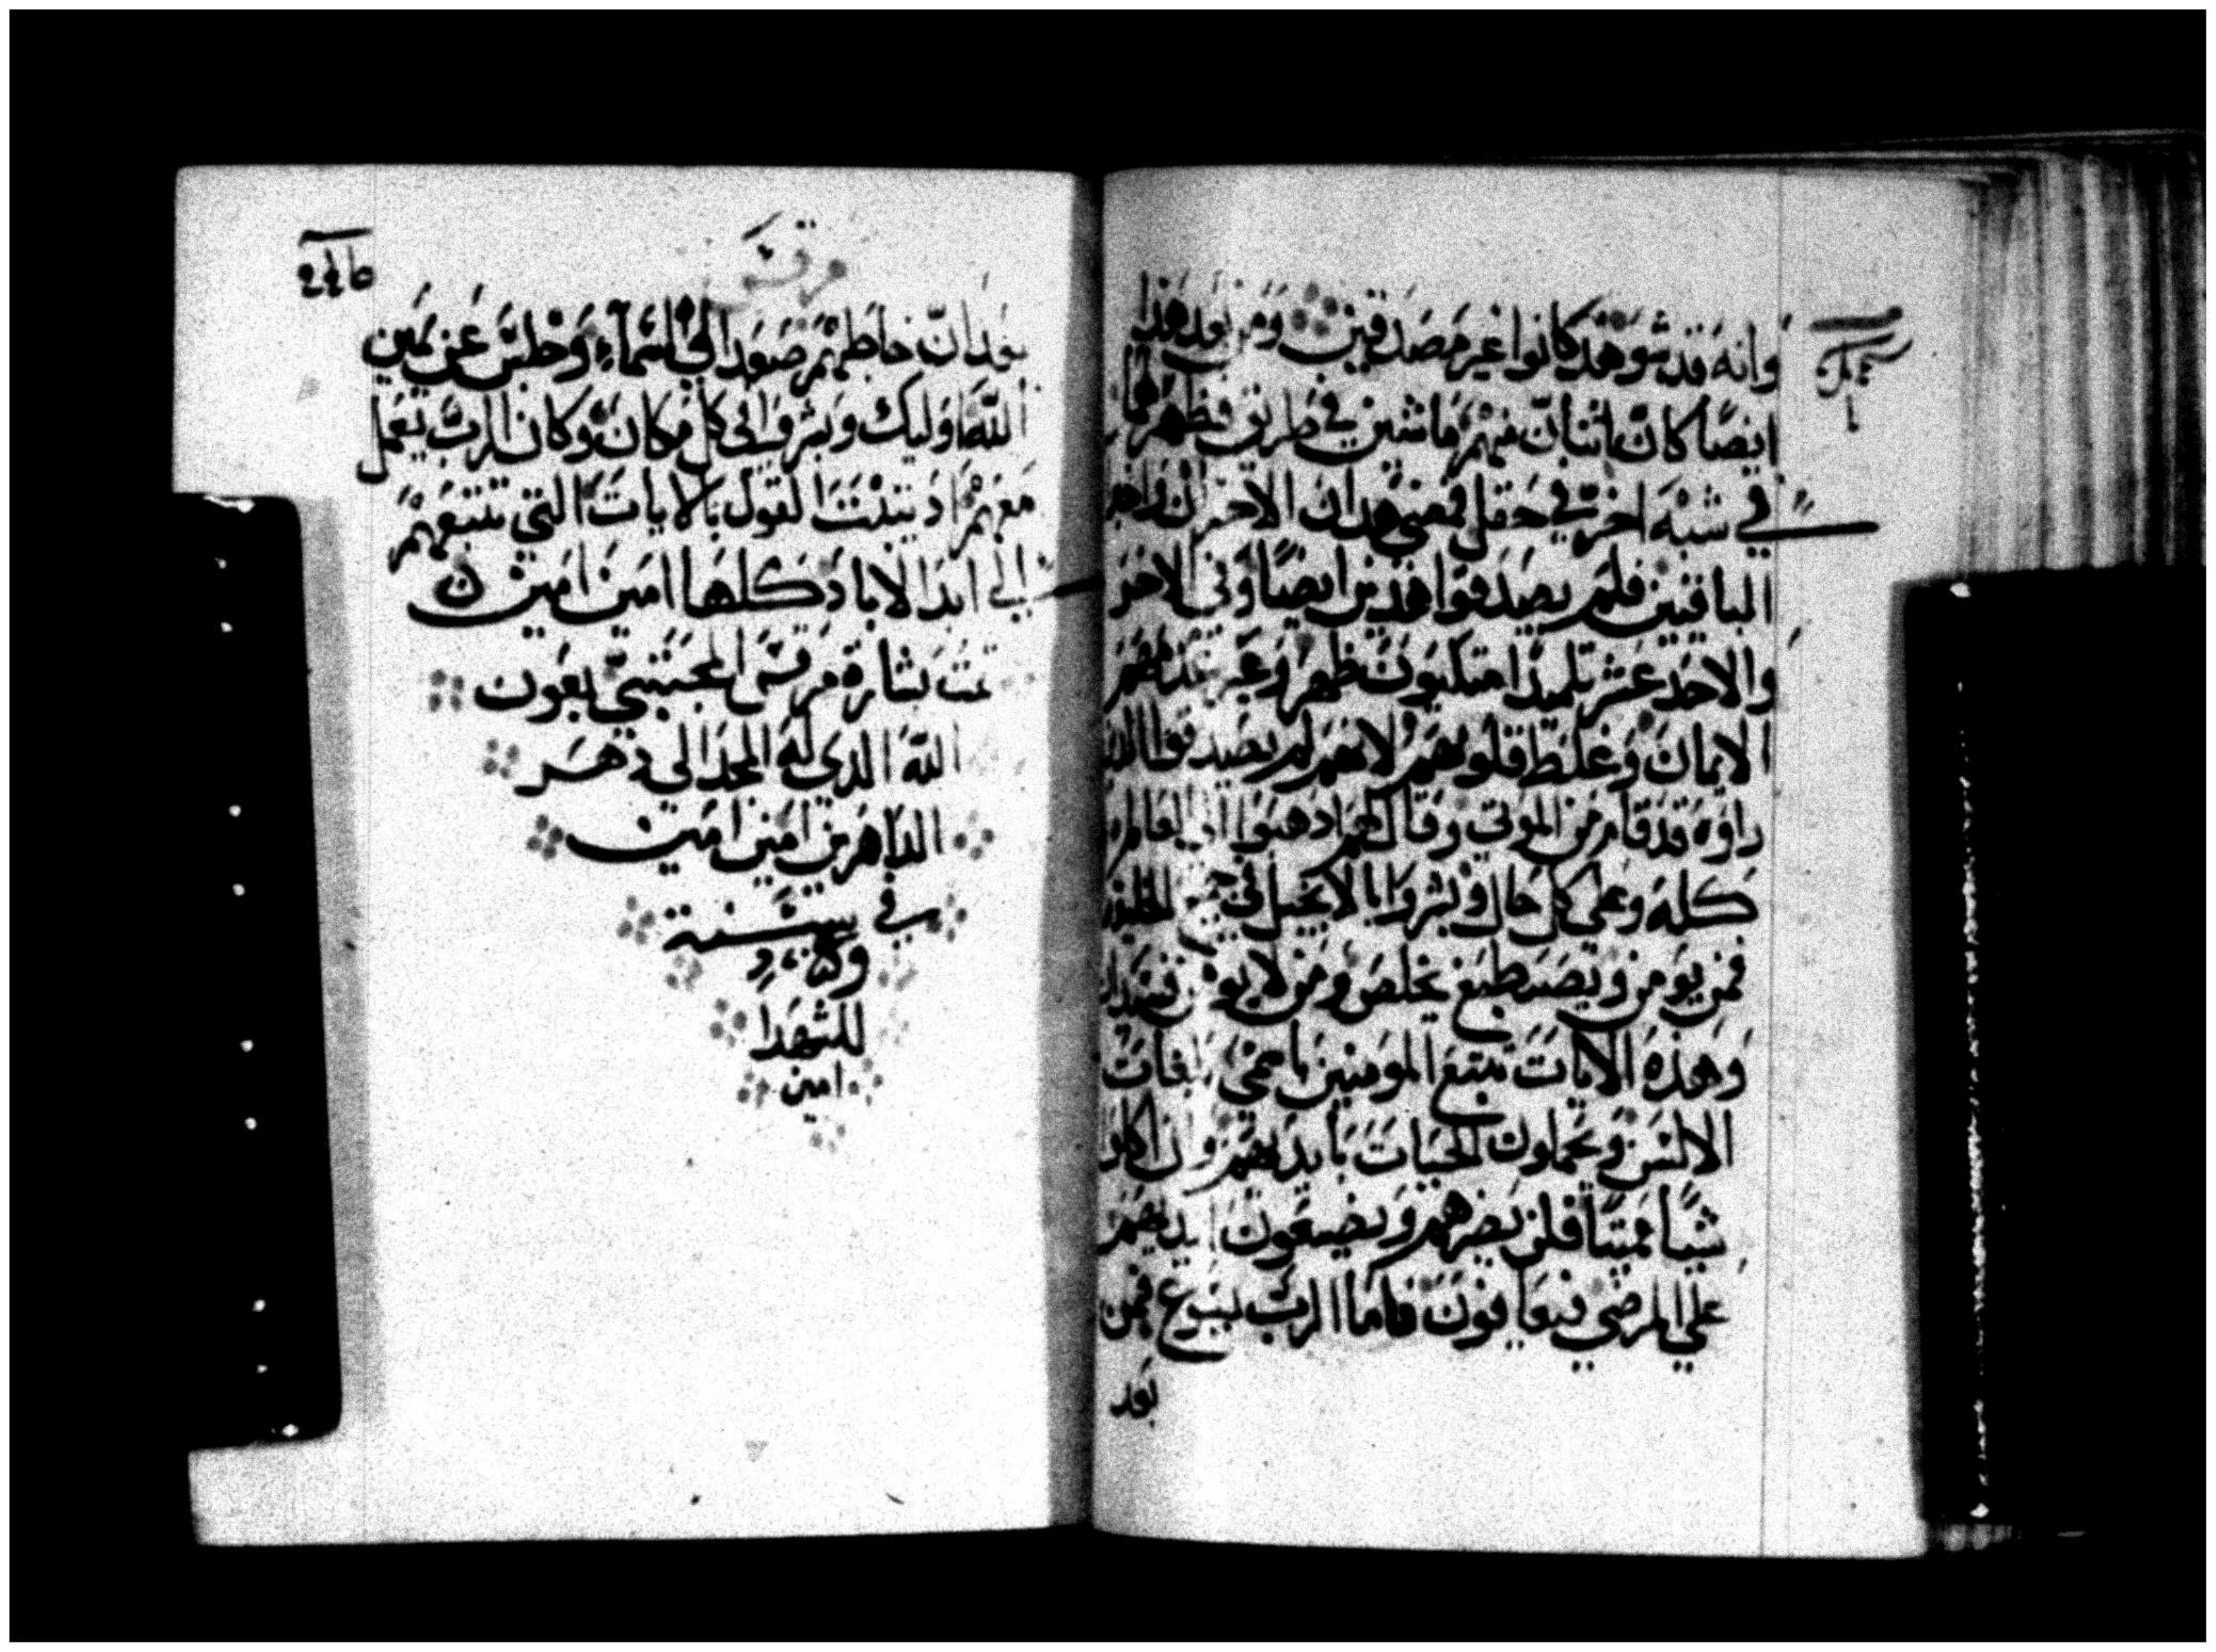 وانه قد شوهد كانوا غير مصدقين ومن بعد هذا
ايضًا كان اثنان منهم ماشين في طريق فظهر لهما
في شبه اخر في حقل فمضي هداك الاخرن
الباقيين فلم يصدقوا هدين ايضًا وفي الاخر
والاحد عشر تلميدًا متكيون ظهر
الايمان وغلظ قلوبهم لانهم لم يصدقوا
راوه قد قام من الموتي وقال لهم ادهبوا الي العالم
كله وعلى كل حال وبشروا بالانجيل في الخليقه
فمن يومن ويصطبغ يخلص ومن لا يومن
وهذه الايات تتبع المومنين باسمي بلغات
الالسن ويحملون الحيات بايديهم وان اكلو
شيا مميتا فلن يضرهم ويضعون ايديهم
علي المرضي فيعافون فاما الرب يسوع فمن
بعد
مرقس
بعد ان خاطبهم صعد الي السماء وجلس عن يمين
الله اوليك وبشروا في كل مكان وكان الرب يعمل
معهم اد يتبث القول بالايات التي تتبعهم
الي ابد الاباد كلها امين امين
تمت بشارة مرقس المجتبي بعون
الله الدي له المجد الي دهر
الداهرين امين امين
في سنة
للشهدا
امين